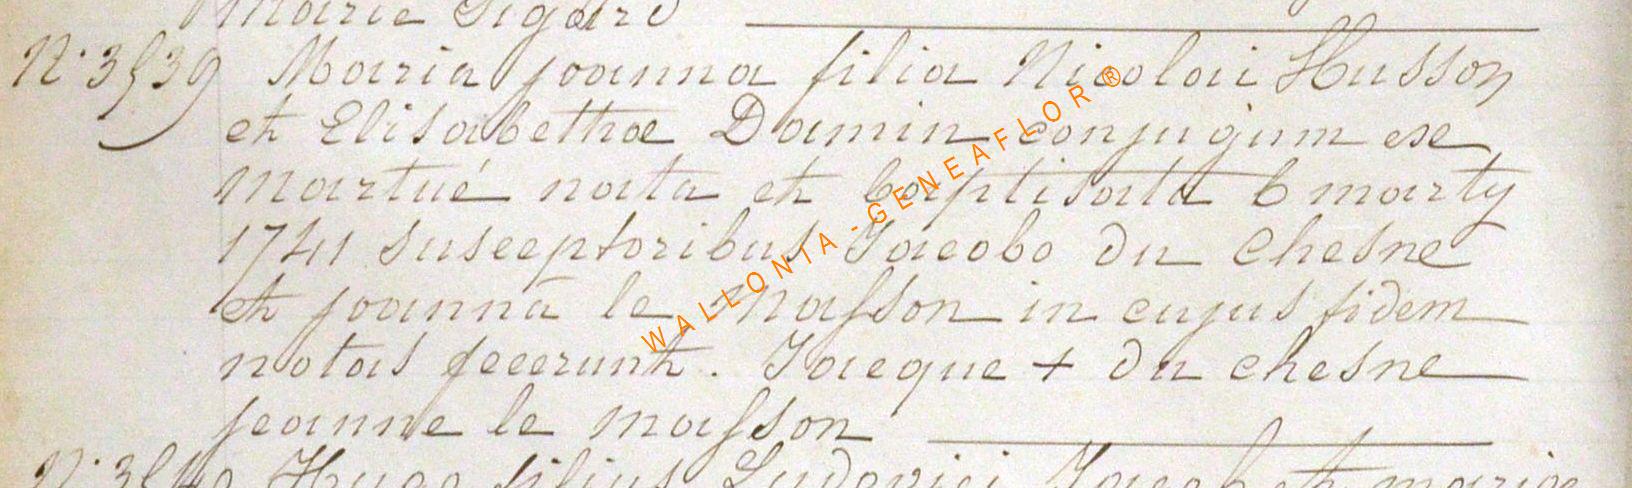 Marie Sigard
N: 3539 Maria joanna filia Nicolai Husson
et Elisabethae Damin conjugum ex
Martué nata et baptisata 6 marty
1741 susceptoribus Jacobo du chesne
et joannâ le Masson in cujus fidem
notas fecerunt. Jacque + du chesne
jeanne le masson
N: 3540 Hugo filius Ludovici Jacob et mariae
WALLONIA - GENEAFLOR ®